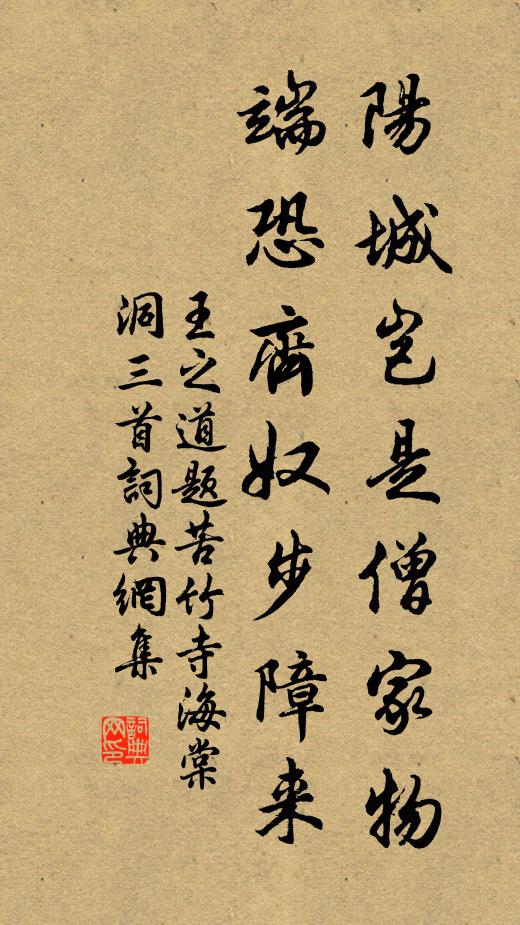 陽城豈是僧家物
端恐齊奴步障来
王之道題苦竹寺海棠
洞三首詞典網集
詞典網印